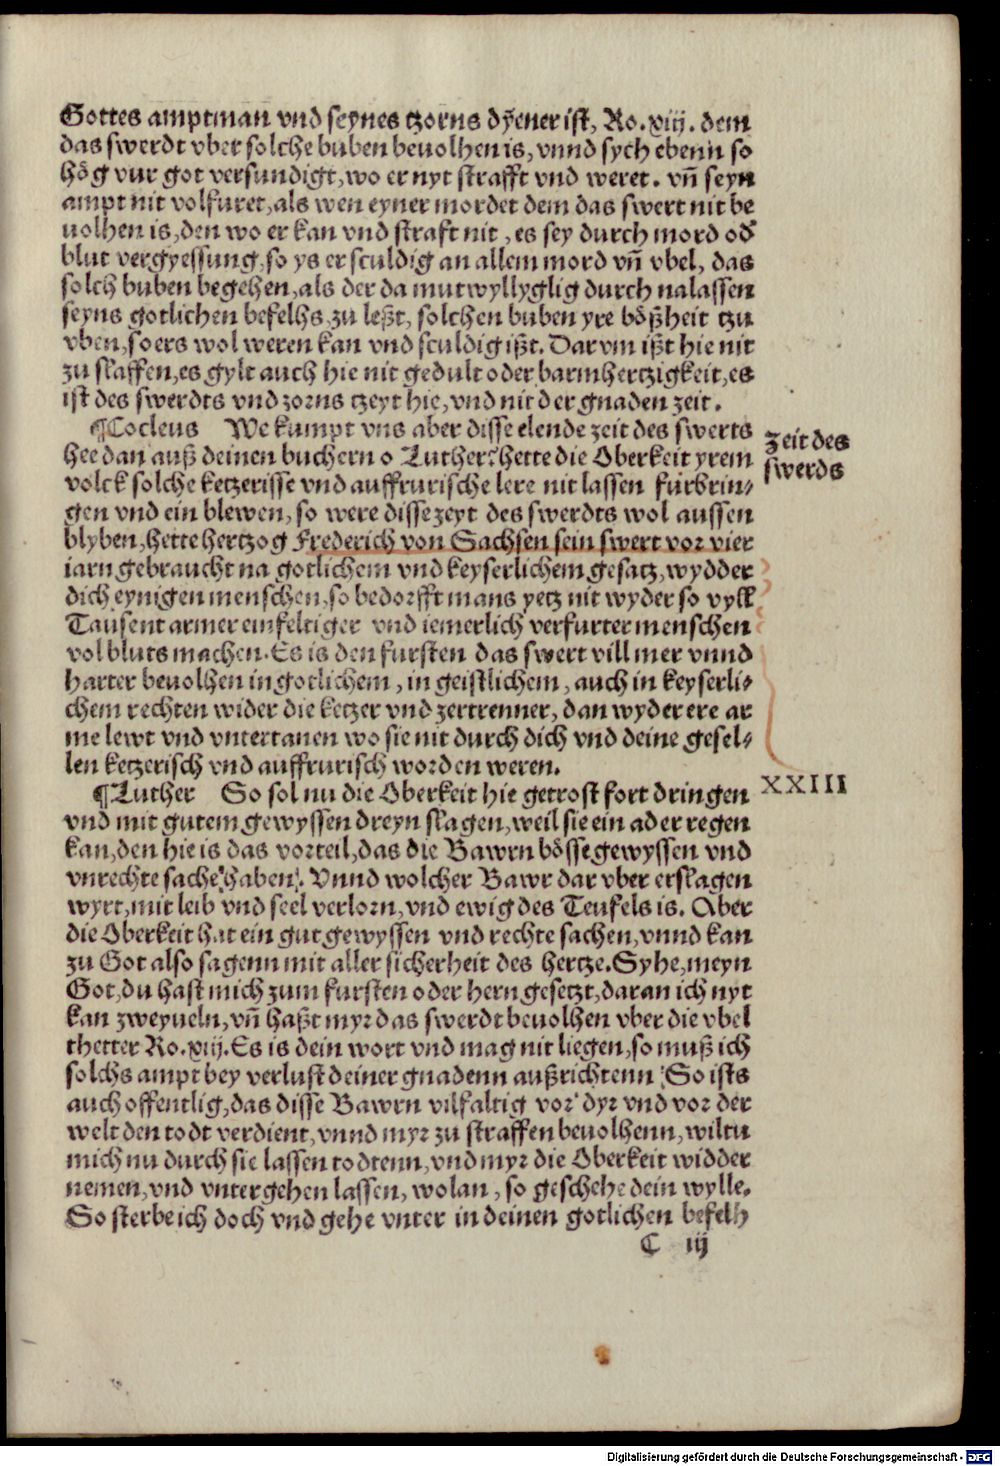 Gottes amptman vnd seynes tzorns dyener ist, Ro. xiij. dem
das swerdt vber solche buben beuolhen is, vnnd sych ebenn so
hög vur got versundigt, wo er nyt strafft vnd weret. vñ seyn
ampt nit volfuret, als wen eyner mordet dem das swert nit be
uolhen is, den wo er kan vnd straft nit, es sey durch mord od
blut vergyessung, so ys er sculdig an allem mord vñ vbel, das
solch buben begehen, als der da mutwyllyglig durch nalassen
seyns gotlichen befelhs, zu leßt, solchen buben yre bößheit tzu
vben, so ers wol weren kan vnd sculdig ißt. Darvm ißt hie nit
zu slaffen, es gylt auch hie nit gedult oder barmhertzigkeit, es
ist des swerdts vnd zorns tzeyt hie, vnd nit der gnaden zeit.
¶Cocleus We kumpt vns aber disse elende zeit des swerts
hee dan auß deinen buchern o Luther? hette die Oberkeit yrem
volck solche ketzerisse vnd auffrurische lere nit lassen furbrin⸗
gen vnd ein blewen, so were disse zeyt des swerdts wol aussen
blyben, hette hertzog Frederich von Sachsen sein swert vor vier
iarn gebraucht na gotlichem vnd keyserlichem gesatz, wydder
dich eynigen menschen, so bedorfft mans yetz nit wyder so vyll
Tausent armer einfeltiger vnd iemerlich verfurter menschen
vol bluts machen. Es is den fursten das swert vill mer vnnd
harter beuolhen in gotlichem, in geistlichem, auch in keyserli⸗
chem rechten wider die ketzer vnd zertrenner, dan wyder ere ar
me lewt vnd vntertanen wo sie nit durch dich vnd deine gesel⸗
len ketzerisch vnd auffrurisch worden weren.
zeit des
swerds
¶Luther So sol nu die Oberkeit hie getrost fort dringen
XXIII
vnd mit gutem gewyssen dreyn slagen, weil sie ein ader regen
kan, den hie is das vorteil, das die Bawrn bösse gewyssen vnd
vnrechte sache haben. Vnnd wolcher Bawr dar vber erslagen
wyrt, mit leib vnd seel verlorn, vnd ewig des Teufels is. Aber
die Oberkeit hat ein gut gewyssen vnd rechte sachen, vnnd kan
zu Got also sagenn mit aller sicherheit des hertze. Syhe, meyn
Got, du hast mich zum fursten oder hern gesetzt, daran ich nyt
kan zweyueln, vñ haßt myr das swerdt beuolhen vber die vbel
thetter Ro. xiij. Es is dein wort vnd mag nit liegen, so muß ich
solchs ampt bey verlust deiner gnadenn außrichtenn So ists
auch offentlig, das disse Bawrn vilfaltig vor dyr vnd vor der
welt den todt verdient, vnnd myr zu straffen beuolhenn, wiltu
mich nu durch sie lassen todtenn, vnd myr die Oberkeit widder
nemen, vnd vntergehen lassen, wolan, so geschehe dein wylle.
So sterbe ich doch vnd gehe vnter in deinen gotlichen befelh
C iij
Digitalisierung gefördert durch die Deutsche Forschungsgemeinschaft - DFG